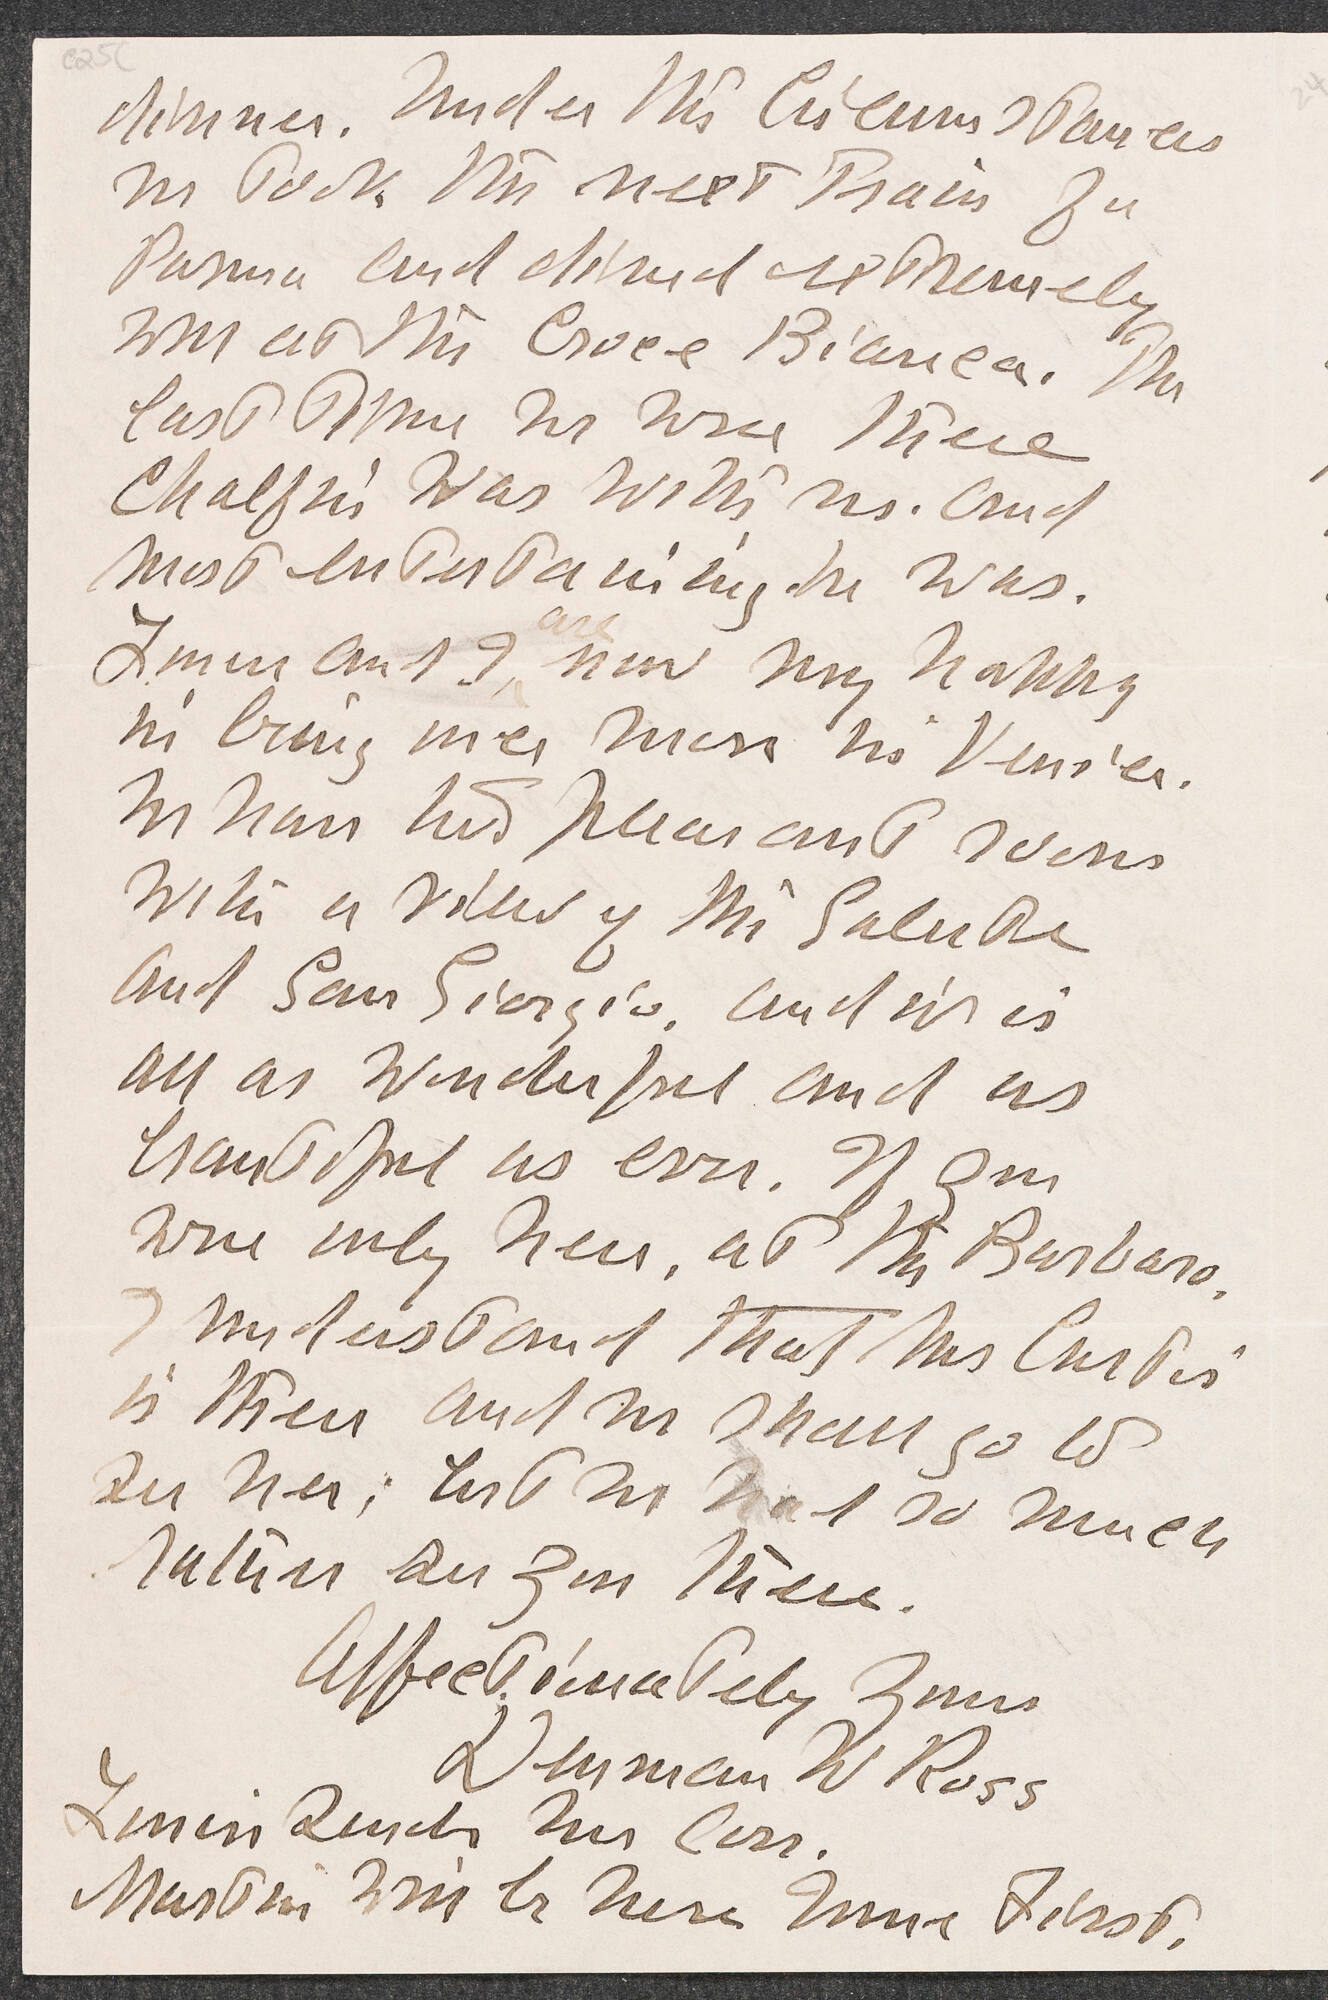 dinner. Under the Circumstances
we took the next Train for
Parma and dined extremely
well at the Croce Bianca. The
last time we were there
Chalfin was with us. and
most entertaining he was.
and I are now very happy
in being once more in Venice.
We have two pleasant rooms
with a view of the Salute
and San Giorgio. and it is
all as wonderful and as
beautiful as ever. If you
were only here, at the Barbaro.
I understand that Mrs Curtis
is there and we shall go to
see her; but we had so much
rather see you there.
Affectionately yours
Denman W Ross
sends her love.
Martin will be here June First.